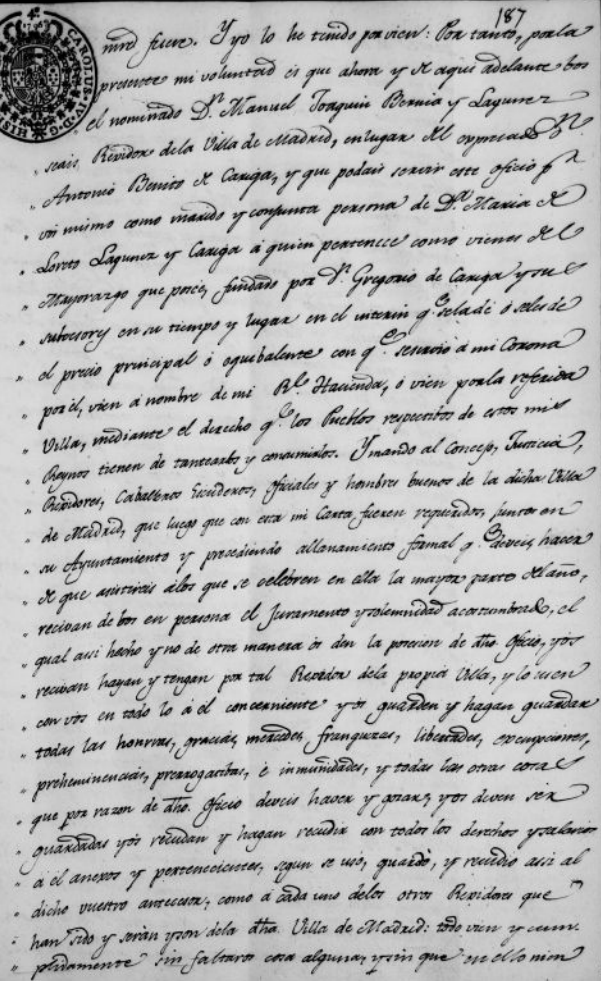 187
mrd fuere. Y yo lo he tenido por vien: Por tanto, por la
presente mi voluntad es que ahora y de aqui adelante bos
el nominado Dn. Manuel Joaquin Bernia y Lagunez
seais Rexidor de la Villa de Madrid, en lugar del expresado Dn.
Antonio Benito de Cariga, y que podais servir este oficio pr.
vos mismo como marido y conjunta persona de Da. Maria de
Loreto Lagunez y Cariga á quien pertenece como vienes del
Mayorazgo que poseé, fundado por Dn. Gregorio de Cariga y sus
subcesores en su tiempo y lugar en el interin qe. se la dé ó seles de
el precio principal ó equibalente con qe. servió á mi Corona
por él, vien á nombre de mi Rl. Hacienda, ó vien por la referida
Villa, mediante el derecho qe. los Pueblos respectibos de estos mis
Reynos tienen de tantearlos y consumirlos. Y mando al Concejo, Justicia,
Rexidores, Caballeros Escuderos, oficiales y hombres buenos de la dicha Villa
de Madrid, que luego que con esta mi Carta fueren requeridos, juntos en
su Ayuntamiento y precediendo allanamiento formal qe. deveis, hacer
de que asistireis á los que se celebren en ella la mayor parte del año,
recivan de bos en persona el Juramento y solemnidad acostumbrado, el
qual assi hecho y no de otra manera os den la posesion de dho. Oficio, y os
recivan hayan y tengan por tal Rexidor dela propia Villa, y lo usen
con vos en todo lo á él concerniente y os guarden y hagan guardar
todas las honrras, gracias, mercedes, franquezas, libertades, exempciones,
preheminencias, prerrogatibas, é inmunidades, y todas las otras cosas
que por razon de dho. Oficio deveis haver y gozar, y os deven ser
guardadas y os recudan y hagan recudir con todos los derechos y salarios
á él anexos y pertenecientes, segun se usó, guardó, y recudio assi al
dicho vuestro antecesor, como á cada uno delos otros Rexidores que
han sido y serán y son dela dha. Villa de Madrid: todo vien y cum-
plidamente sin faltaros cosa alguna, y sin que en ello nim